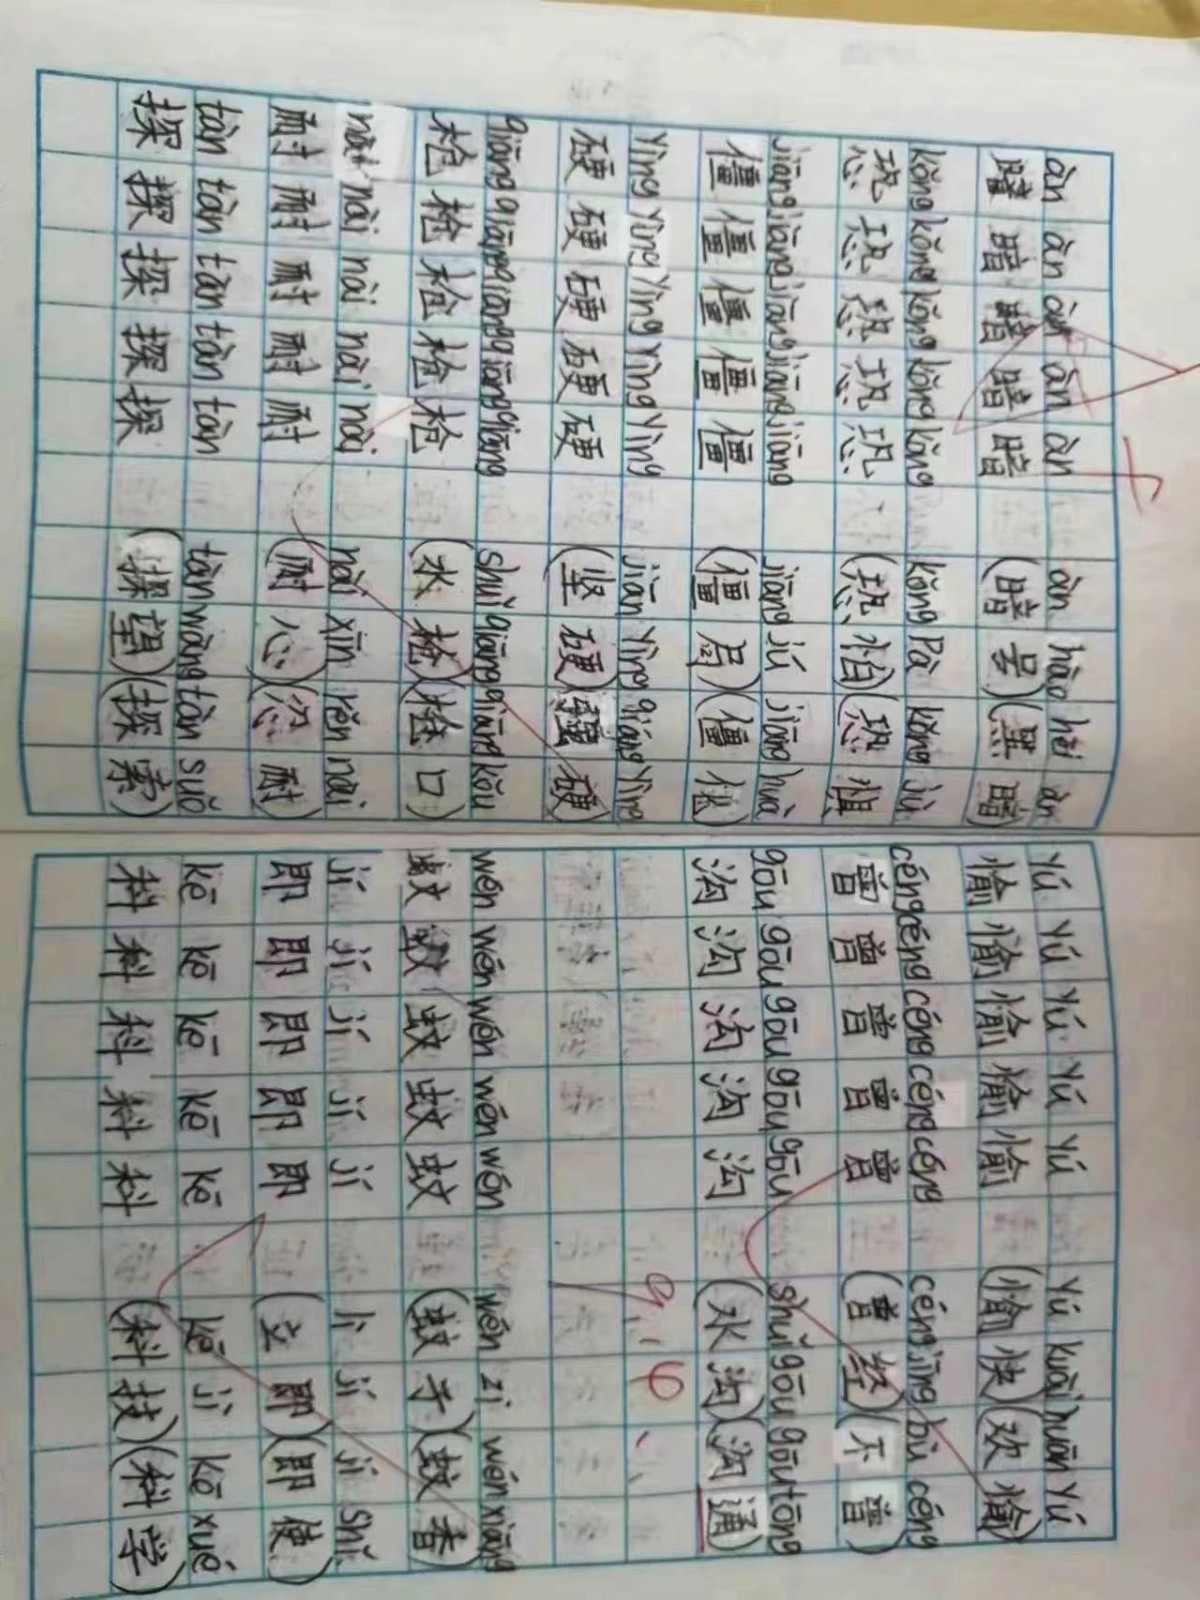 àn àn àn àn àn àn hào hēi àn
暗 暗 暗 暗 暗 (暗号)(黑暗)
kǒng kǒng kǒng kǒng kǒng kǒng Pà kǒng jù
恐 恐 恐 恐 恐 (恐怕)(恐惧)
jiāng jiāng jiāng jiāng jiāng jiāng jú jiāng huà
僵 僵 僵 僵 僵 (僵局)(僵化)
Yìng Yìng Yìng Yìng Yìng jiān Yìng qiáng Yìng
硬 硬 硬 硬 硬 (坚硬)(强硬)
qiāng qiāng qiāng qiāng qiāng shuǐ qiāng qiāng kǒu
枪 枪 枪 枪 枪 (水枪)(枪口)
nài nài nài nài nài nài xīn rěn nài
耐 耐 耐 耐 耐 (耐心)(忍耐)
tàn tàn tàn tàn tàn tàn wàng tàn suǒ
探 探 探 探 探 (探望)(探索)
Yú Yú Yú Yú Yú Yú kuài huān Yú
愉 愉 愉 愉 愉 (愉快)(欢愉)
céng céng céng céng céng céng jīng bù céng
曾 曾 曾 曾 曾 (曾经)(不曾)
gōu gōu gōu gōu gōu shuǐ gōu gōu tōng
沟 沟 沟 沟 沟 (水沟)(沟通)
wén wén wén wén wén wén zi wén xiāng
蚊 蚊 蚊 蚊 蚊 (蚊子)(蚊香)
jí jí jí jí jí lì jí jí shǐ
即 即 即 即 即 (立即)(即使)
kē kē kē kē kē kē jì kē xué
科 科 科 科 科 (科技)(科学)